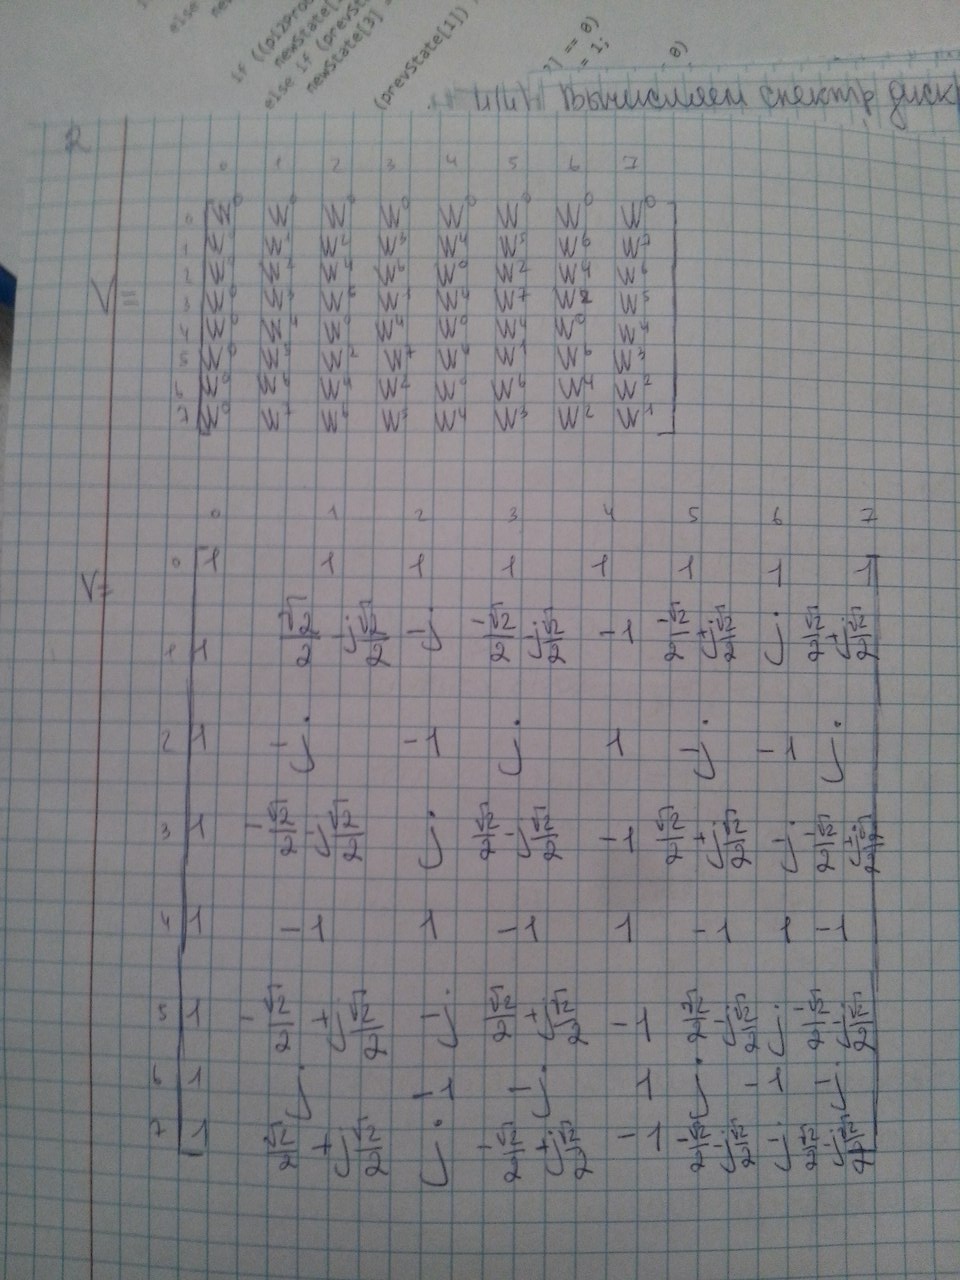 else
new
if ((pi2Pro
newState[
else if (prevS
newState[3] =
(prevState[1])
] == 0)
= 1;
0)
Вычисляем спектр диск
0 1 2 3 4 5 6 7
V=
0 W⁰ W⁰ W⁰ W⁰ W⁰ W⁰ W⁰ W⁰
1 W⁰ W¹ W² W³ W⁴ W⁵ W⁶ W⁷
2 W⁰ W² W⁴ W⁶ W⁰ W² W⁴ W⁶
3 W⁰ W³ W⁶ W¹ W⁴ W⁷ W² W⁵
4 W⁰ W⁴ W⁰ W⁴ W⁰ W⁴ W⁰ W⁴
5 W⁰ W⁵ W² W⁷ W⁴ W¹ W⁶ W³
6 W⁰ W⁶ W⁴ W² W⁰ W⁶ W⁴ W²
7 W⁰ W⁷ W⁶ W⁵ W⁴ W³ W² W¹
0 1 2 3 4 5 6 7
V=
0 1 1 1 1 1 1 1 1
1 1 √2/2 -j√2/2 -j -√2/2 -j√2/2 -1 -√2/2 +j√2/2 j √2/2 +j√2/2
2 1 -j -1 j 1 -j -1 j
3 1 -√2/2 -j√2/2 j √2/2 -j√2/2 -1 √2/2 +j√2/2 -j -√2/2 +j√2/2
4 1 -1 1 -1 1 -1 1 -1
5 1 -√2/2 +j√2/2 -j √2/2 +j√2/2 -1 √2/2 -j√2/2 j -√2/2 -j√2/2
6 1 j -1 -j 1 j -1 -j
7 1 √2/2 +j√2/2 j -√2/2 +j√2/2 -1 -√2/2 -j√2/2 -j √2/2 -j√2/2